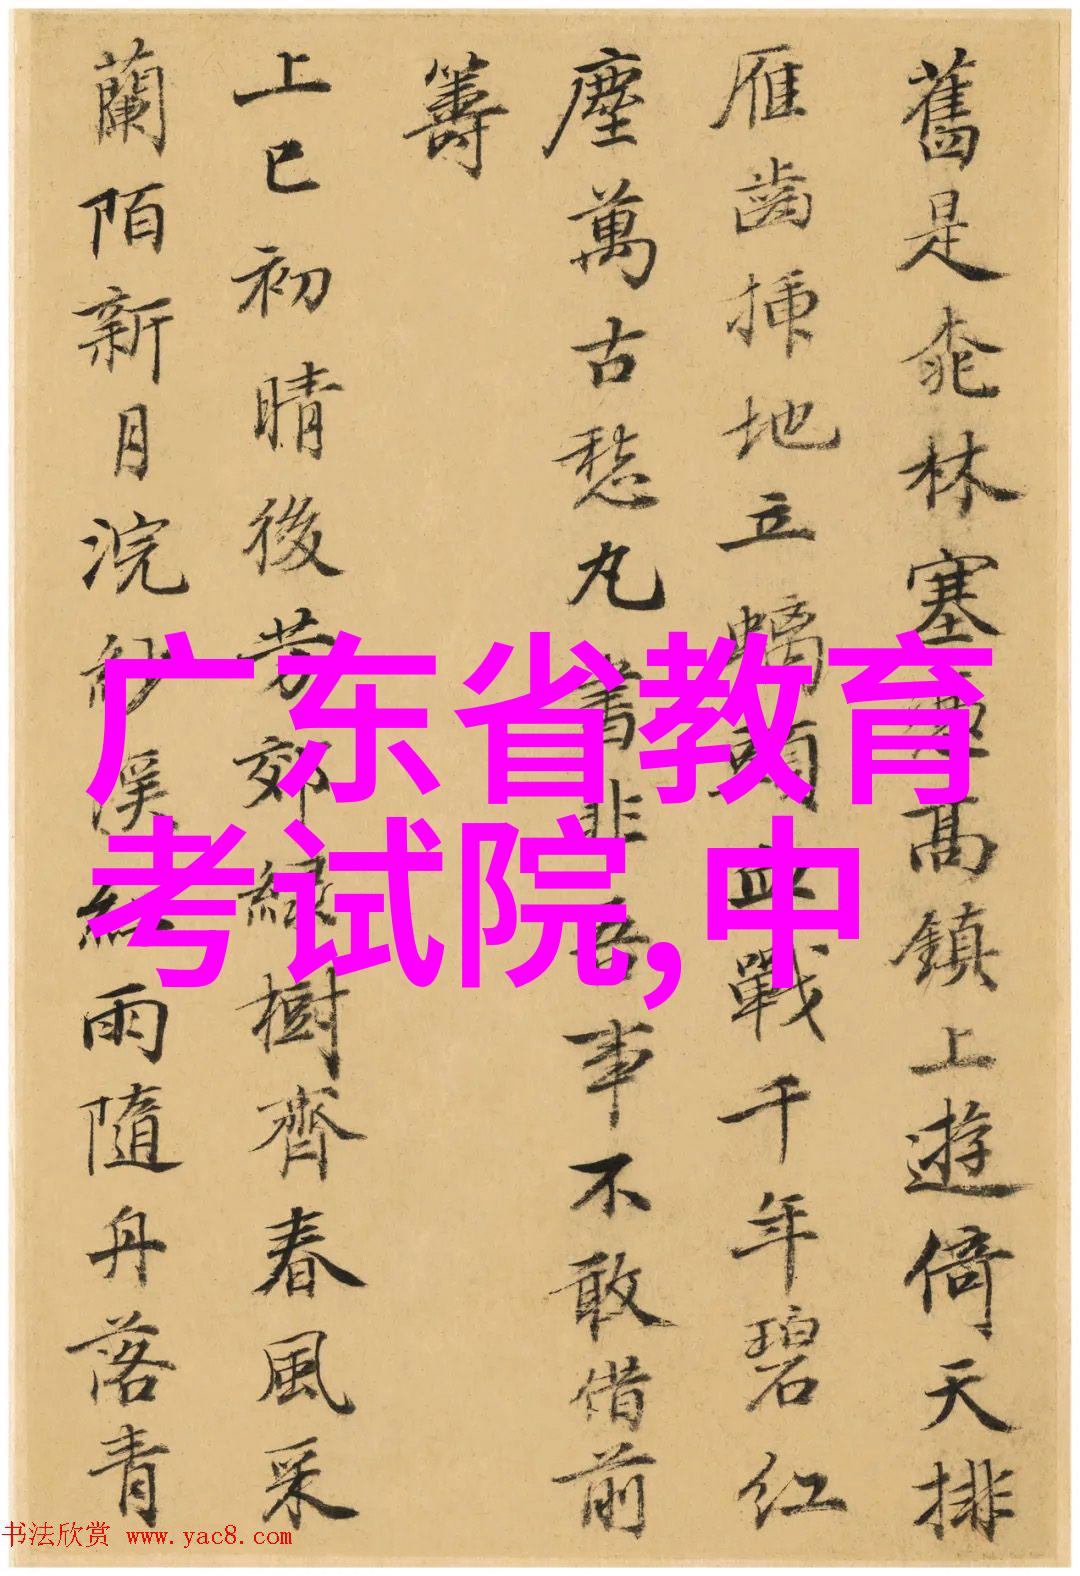 舊是桃林塞興高鎮上遊倚天排
雁齒插地立螭頭血戰千年碧紅
塵萬古愁丸書非吾事不敢借前
籌
上巳初晴後芳郊緑樹齊春風采
蘭陌新月浣紗溪紅雨隨舟落青
广东省教育
考试院,中
书法欣赏 www.yac8.com